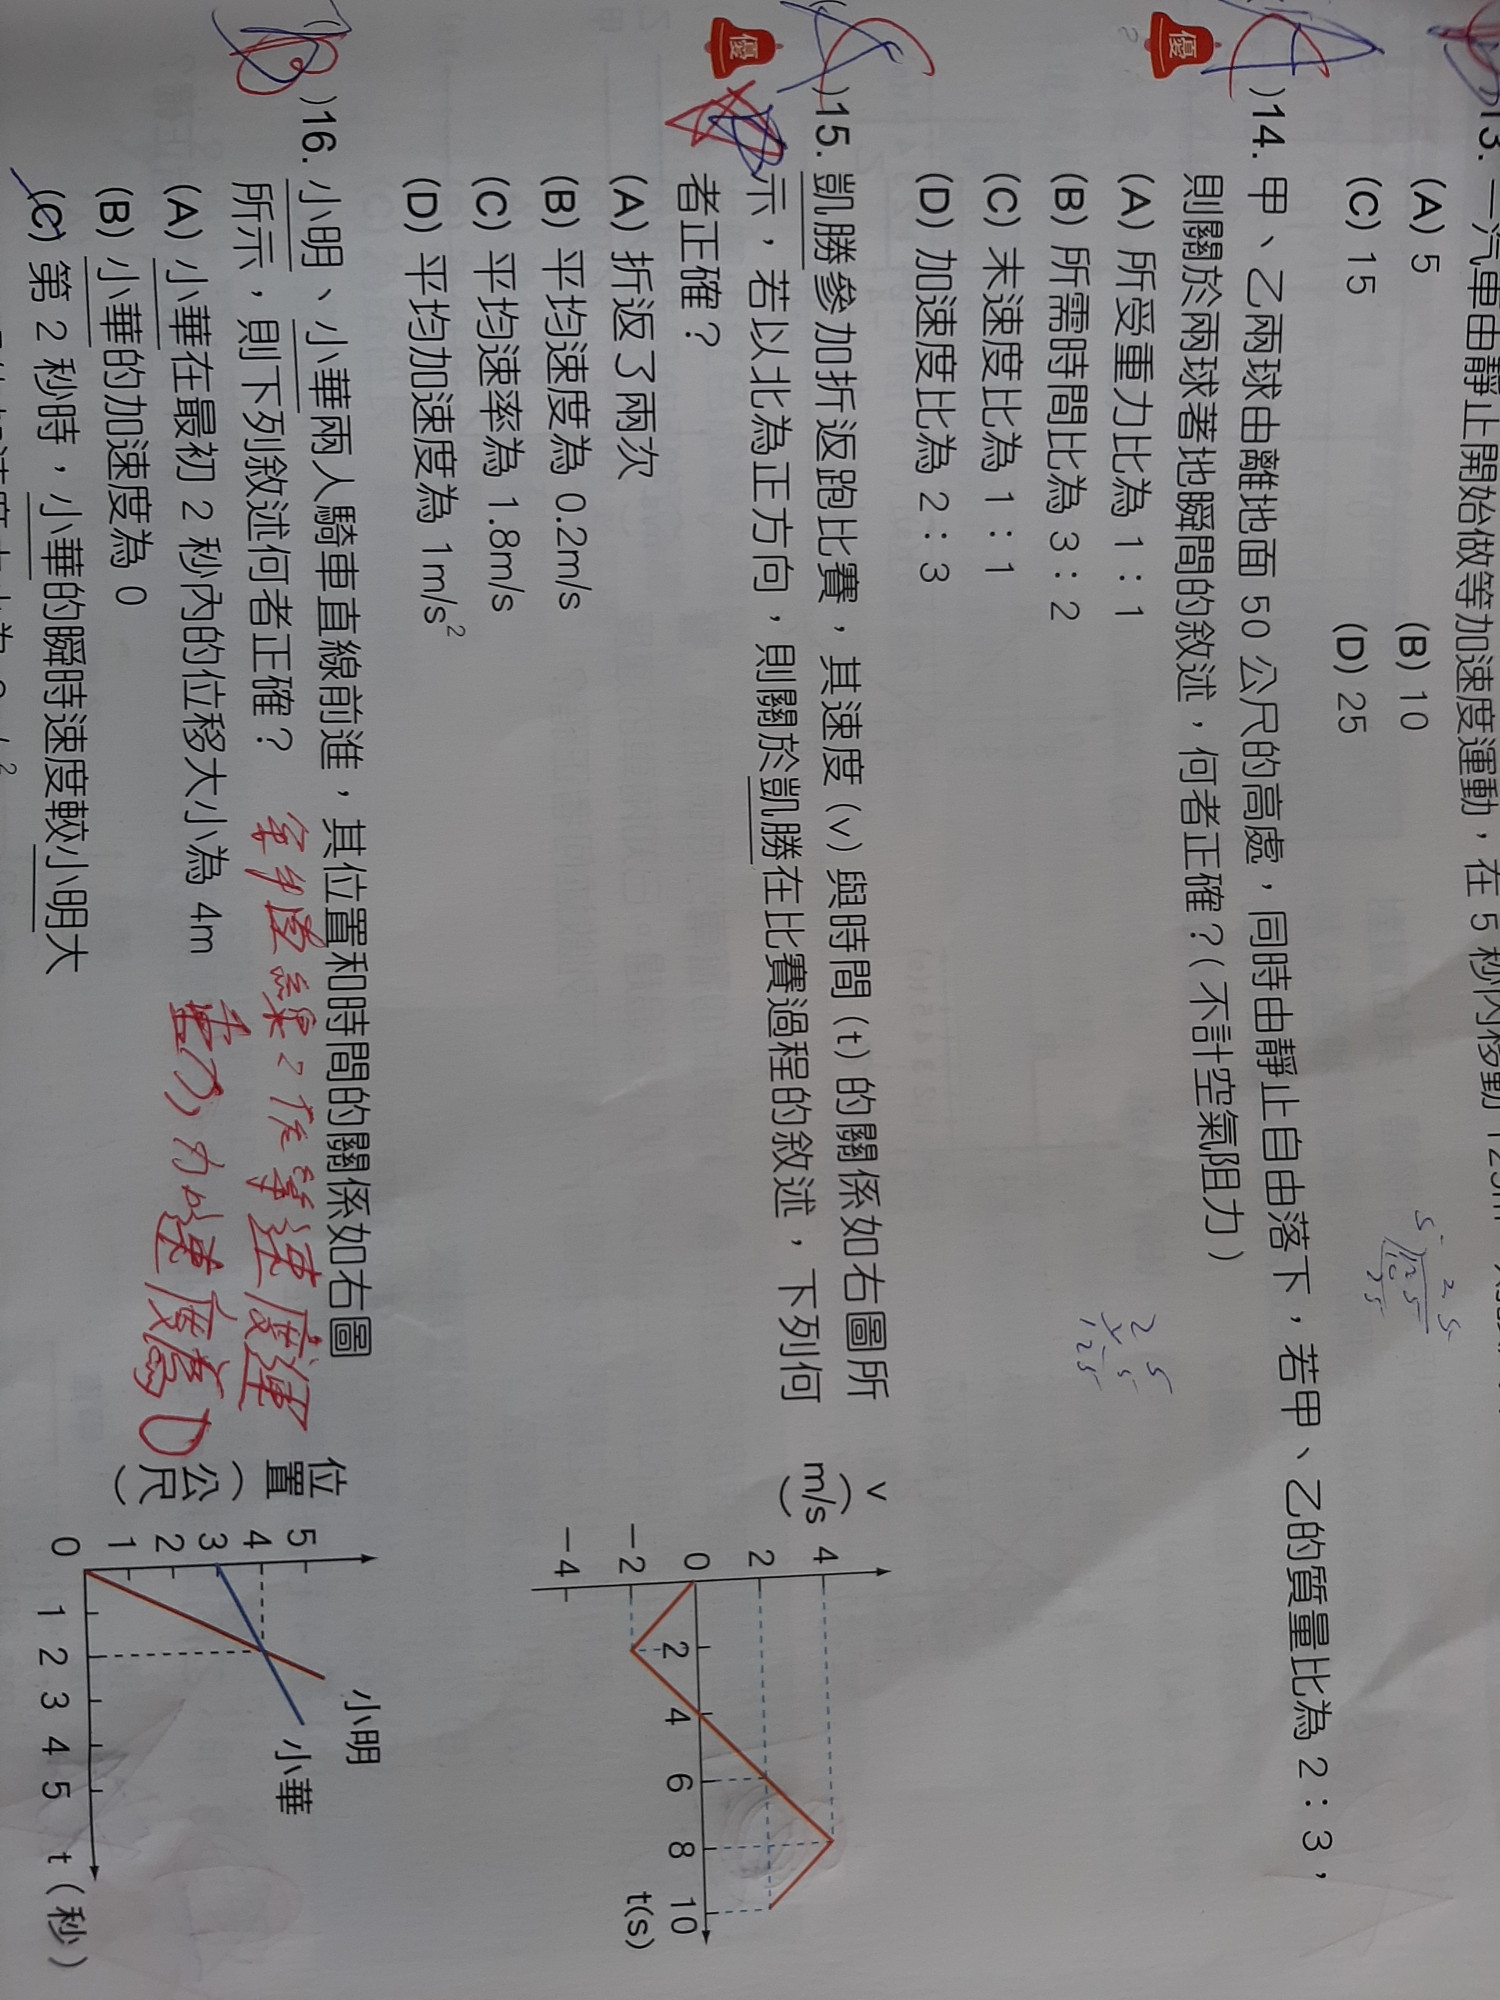 13. 一汽車由靜止開始做等加速度運動，在 5 秒內移動 125m
(A) 5
(B) 10
(C) 15
(D) 25
優
A )14. 甲、乙兩球由離地面 50 公尺的高處，同時由靜止自由落下，若甲、乙的質量比為 2：3，
則關於兩球著地瞬間的敘述，何者正確？（不計空氣阻力）
(A) 所受重力比為 1：1
(B) 所需時間比為 3：2
(C) 末速度比為 1：1
(D) 加速度比為 2：3
25
5
125
優
)15. 凱勝參加折返跑比賽，其速度（v）與時間（t）的關係如右圖所
示，若以北為正方向，則關於凱勝在比賽過程的敘述，下列何
者正確？
(A) 折返了兩次
(B) 平均速度為 0.2m/s
(C) 平均速率為 1.8m/s
(D) 平均加速度為 1m/s²
v
(m/s)
4
2
0
−2
−4
2 4 6 8 10
t(s)
B )16. 小明、小華兩人騎車直線前進，其位置和時間的關係如右圖
所示，則下列敘述何者正確？
(A) 小華在最初 2 秒內的位移大小為 4m
(B) 小華的加速度為 0
(C) 第 2 秒時，小華的瞬時速度較小明大
加速度為0
位置（公尺）
5
4
3
2
1
0
1 2 3 4 5 t（秒）
小明
小華